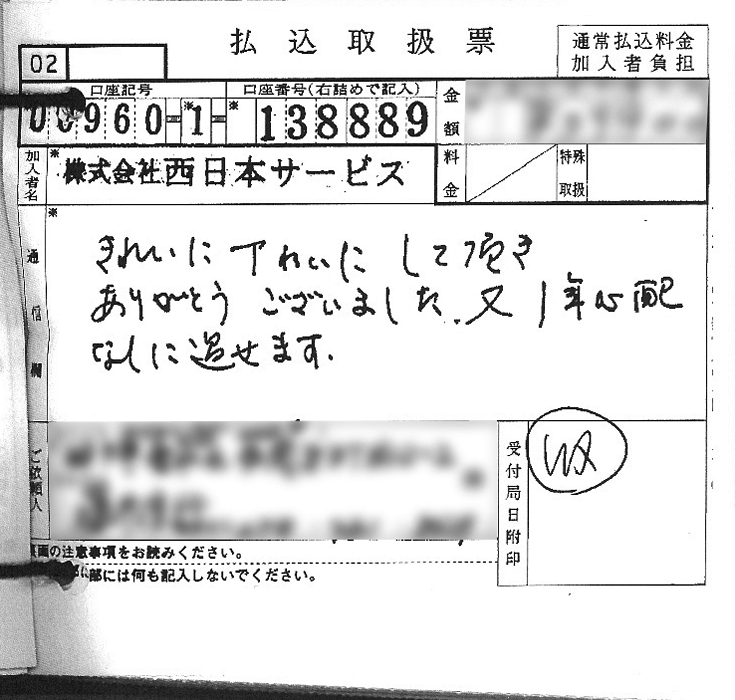 払込取扱票
通常払込料金
加入者負担
02
口座記号
口座番号(右詰めで記入)
00960-※1-※138889
金額
加入者名
※株式会社西日本サービス
料金
特殊取扱
通信欄
※
きれいにていねいにして頂き
ありがとうございました。又1年心配
なしに過せます。
ご依頼人
受付局日附印
収
裏面の注意事項をお読みください。
部には何も記入しないでください。